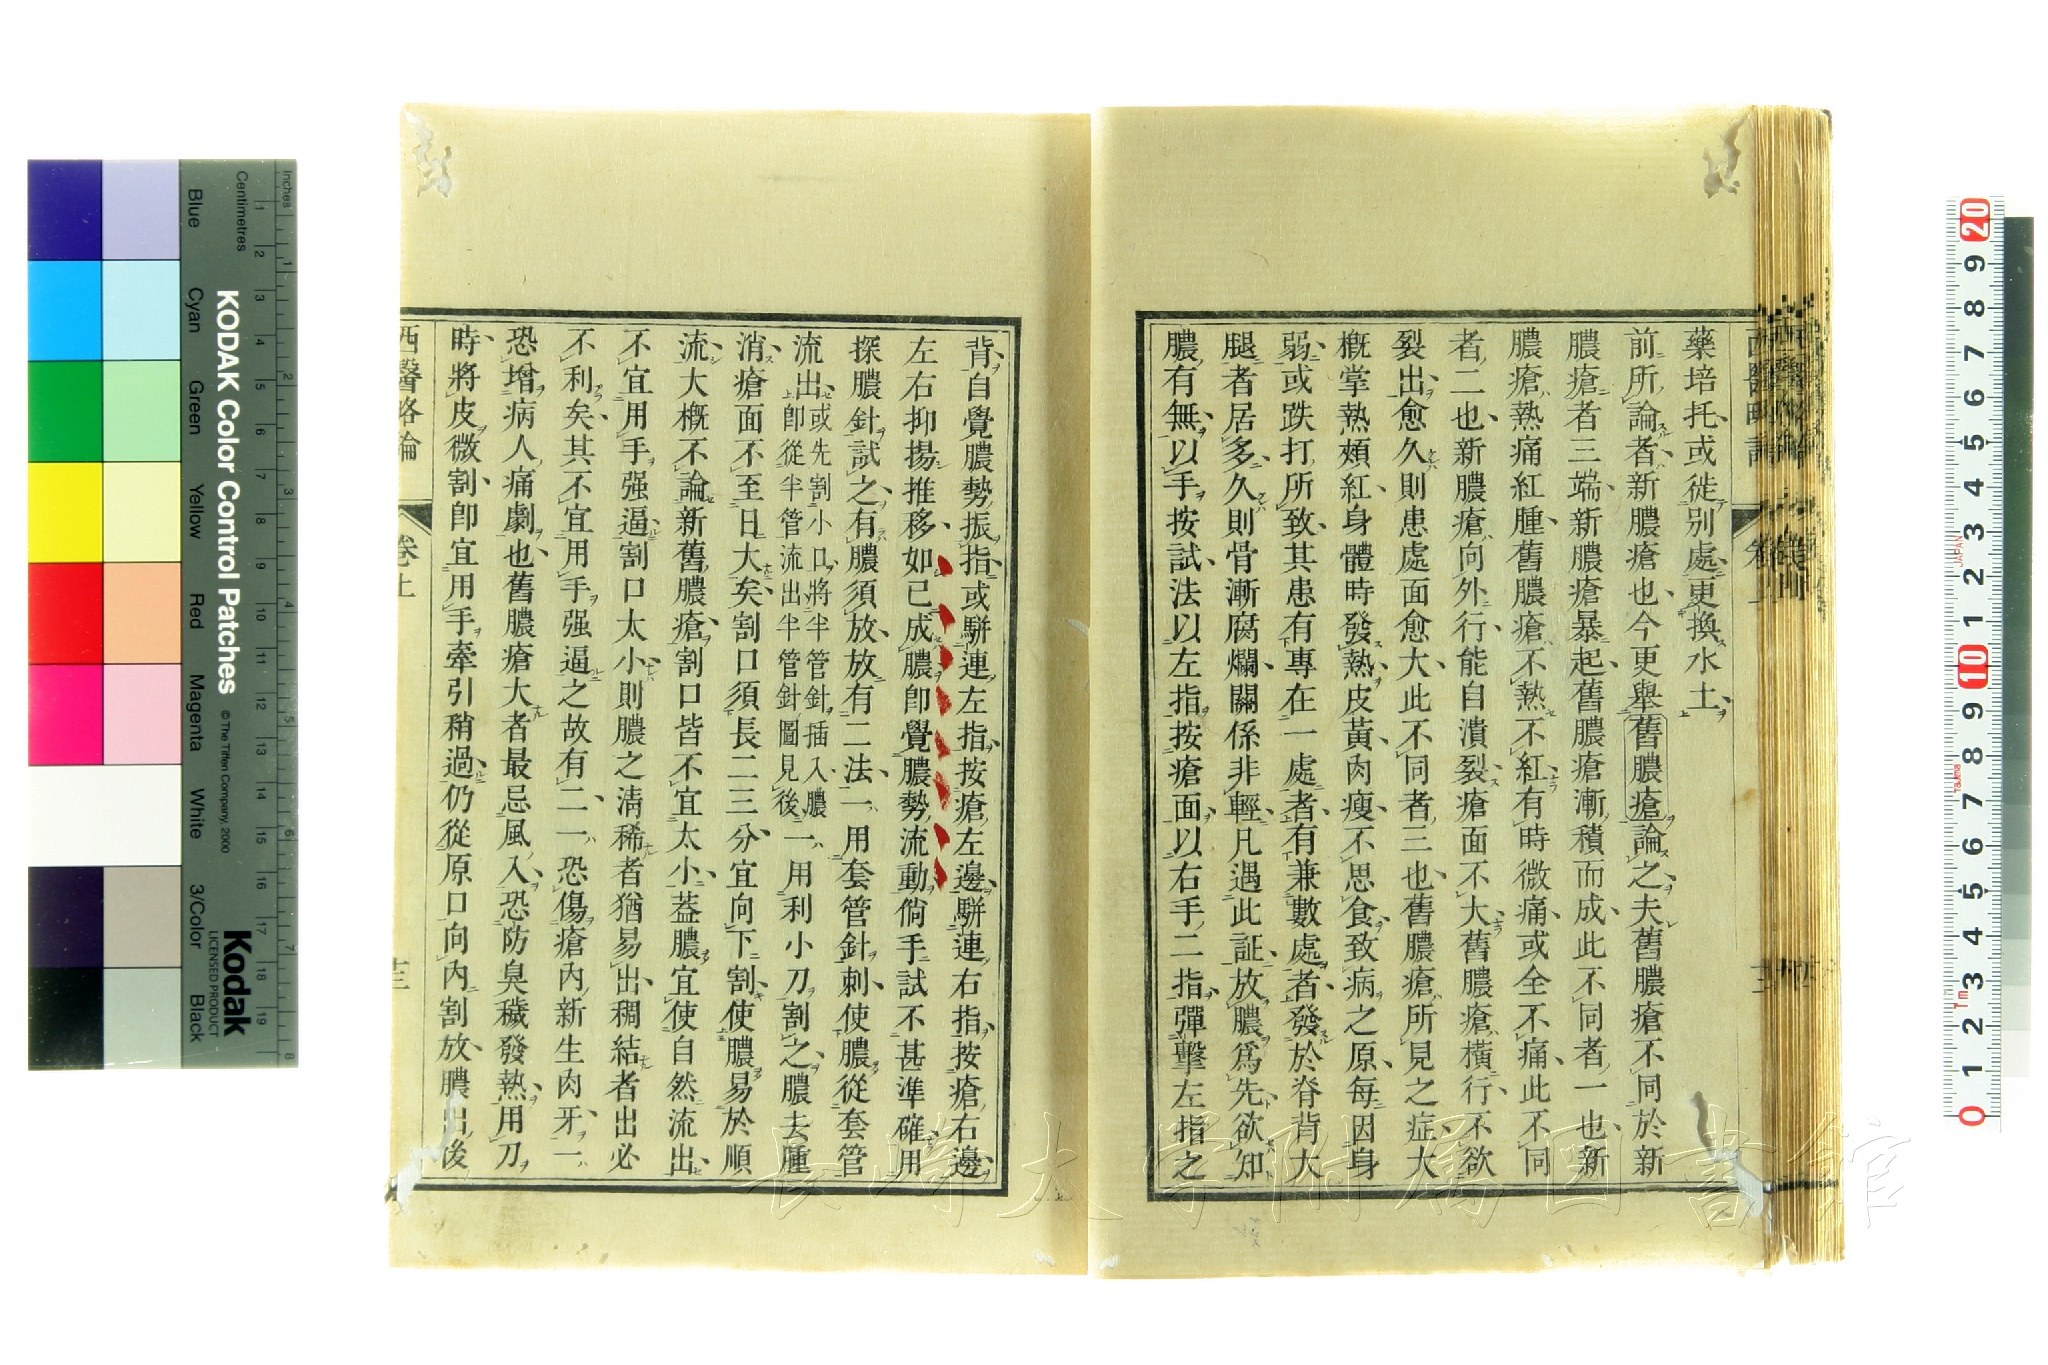 藥培托、或徙別處更換水土、
前所論者新膿瘡也、今更舉舊膿瘡論之、夫舊膿瘡不同於新
膿瘡者三端、新膿瘡暴起、舊膿瘡漸積而成、此不同者一也、新
膿瘡熱痛紅腫、舊膿瘡不熱不紅、有時微痛、或全不痛、此不同
者、二也、新膿瘡向外行、能自潰裂、瘡面不大、舊膿瘡橫行、不欲
裂出、愈久則患處面愈大、此不同者、三也、舊膿瘡所見之症、大
概掌熱頰紅、身體時發熱、皮黃肉瘦、不思食、致病之原、每因身
弱、或跌打所致、其患有專在一處者、有兼數處者、發於脊背大
腿者居多、久則骨漸腐爛、關係非輕、凡遇此証、放膿爲先、欲知
膿有無、以手按試、法以左指按瘡面、以右手二指彈擊左指之
背、自覺膿勢振指、或駢連左指、按瘡左邊、駢連右指、按瘡右邊、
左右抑揚推移、如已成膿、卽覺膿勢流動、倘手試不甚準確、用
探膿針試之、有膿須放、放有二法、一用套管針刺、使膿從套管
流出、或先割小口、將半管針插入、膿
卽從半管流出、半管針圖見後、一用利小刀割之、膿去腫
消、瘡面不至日大矣、割口須長二三分、宜向下割、使膿易於順
流、大概不論新舊膿瘡、割口皆不宜太小、葢膿宜使自然流出、
不宜用手强逼、割口太小、則膿之淸稀者猶易出、稠結者出必
不利矣、其不宜用手强逼之故有二、一恐傷瘡內新生肉牙、一
恐增病人痛劇也、舊膿瘡大者、最忌風入、恐防臭穢發熱、用刀
時、將皮微割、卽宜用手牽引稍過、仍從原口向內割、放膿出後
西醫略論
卷上
長崎大学附属図書館
KODAK Color Control Patches
© The Tiffen Company, 2000
Kodak
LICENSED PRODUCT
Inches
Centimetres
Blue
Cyan
Green
Yellow
Red
Magenta
White
3/Color
Black
1 2 3 4 5 6 7 8 9 10 11 12 13 14 15 16 17 18 19
1 2 3 4 5 6 7 8
0 1 2 3 4 5 6 7 8 9 10 1 2 3 4 5 6 7 8 9 20
JAPAN